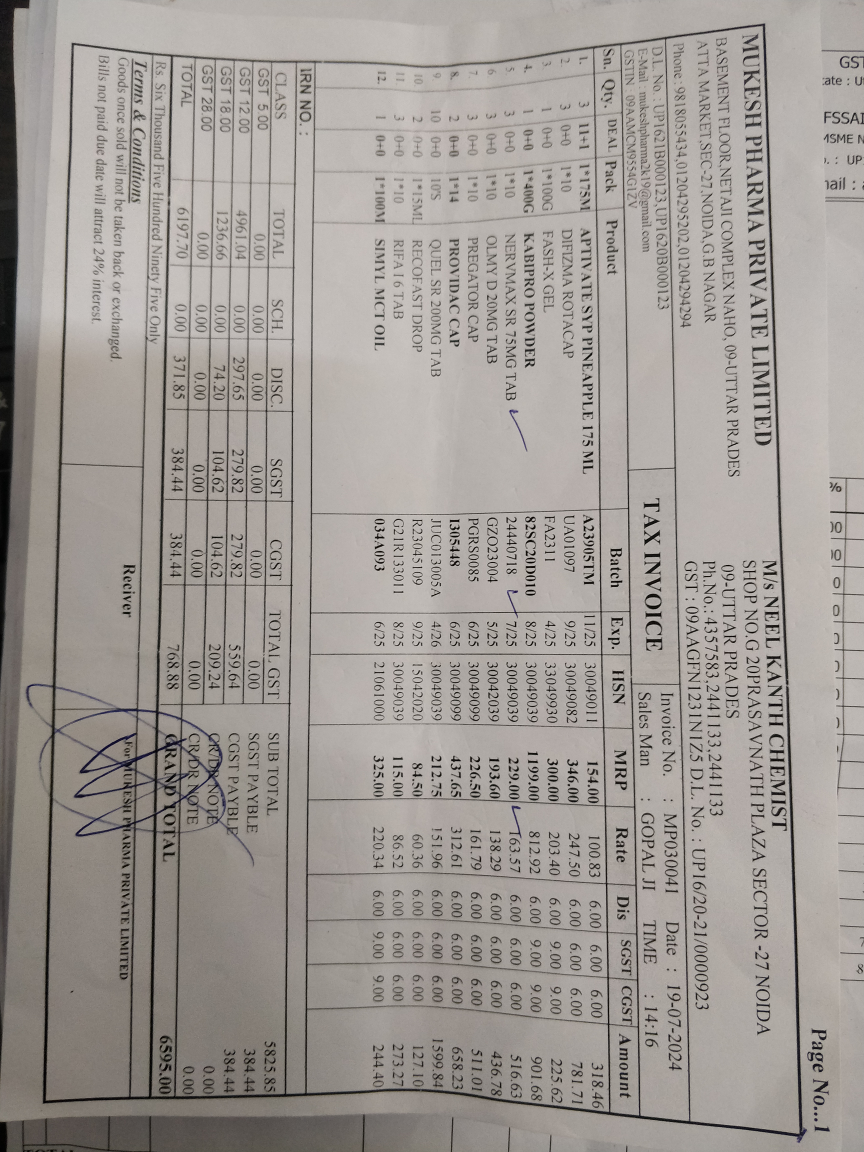 Page No...1
MUKESH PHARMA PRIVATE LIMITED
BASEMENT FLOOR,NETAJI COMPLEX NAHO, 09-UTTAR PRADES
ATTA MARKET,SEC-27,NOIDA,G.B NAGAR
Phone : 9818055434,01204295202,01204294294
D.L. No. : UP1621B000123,UP1620B000123
E-Mail : mukeshpharma2k19@gmail.com
GSTIN : 09AAMCM9554G1ZV
M/s NEEL KANTH CHEMIST
SHOP NO.G 20PRASAVNATH PLAZA SECTOR -27 NOIDA
09-UTTAR PRADES
Ph.No.: 4357583,2441133,2441133
GST : 09AAGFN1231N1Z5 D.L. No. : UP16/20-21/0000923
TAX INVOICE
Invoice No. : MP030041 Date : 19-07-2024
Sales Man : GOPAL JI TIME : 14:16
Sn. Qty. DEAL Pack Product Batch Exp. HSN MRP Rate Dis SGST CGST Amount
1. 3 11+1 1*175M APTIVATE SYP PINEAPPLE 175 ML A23905TM 11/25 30049011 154.00 100.83 6.00 6.00 6.00 318.46
2. 3 0+0 1*10 DIFIZMA ROTACAP UA01097 9/25 30049082 346.00 247.50 6.00 6.00 6.00 781.71
3. 1 0+0 1*100G FASH-X GEL FA2311 4/25 33049930 300.00 203.40 6.00 9.00 9.00 225.62
4. 1 0+0 1*400G KABIPRO POWDER 82SC20D010 8/25 30049039 1199.00 812.92 6.00 9.00 9.00 901.68
5 3 0+0 1*10 NERVMAX SR 75MG TAB 24440718 7/25 30049039 229.00 163.57 6.00 6.00 6.00 516.63
6 3 0+0 1*10 OLMY D 20MG TAB GZO23004 5/25 30042039 193.60 138.29 6.00 6.00 6.00 436.78
7. 3 0+0 1*10 PREGATOR CAP PGRS0085 6/25 30049099 226.50 161.79 6.00 6.00 6.00 511.01
8. 2 0+0 1*14 PROVIDAC CAP 1305448 6/25 30049099 437.65 312.61 6.00 6.00 6.00 658.23
9. 10 0+0 10'S QUEL SR 200MG TAB JUC013005A 4/26 30049039 212.75 151.96 6.00 6.00 6.00 1599.84
10. 2 0+0 1*15ML RECOFAST DROP R23045109 9/25 15042020 84.50 60.36 6.00 6.00 6.00 127.10
11 3 0+0 1*10 RIFA I 6 TAB G21R133011 8/25 30049039 115.00 86.52 6.00 6.00 6.00 273.27
12. 1 0+0 1*100M SIMYL MCT OIL 034A093 6/25 21061000 325.00 220.34 6.00 9.00 9.00 244.40
IRN NO. :
CLASS TOTAL SCH. DISC. SGST CGST TOTAL GST
GST 5.00 0.00 0.00 0.00 0.00 0.00 0.00
GST 12.00 4961.04 0.00 297.65 279.82 279.82 559.64
GST 18.00 1236.66 0.00 74.20 104.62 104.62 209.24
GST 28.00 0.00 0.00 0.00 0.00 0.00 0.00
TOTAL 6197.70 0.00 371.85 384.44 384.44 768.88
SUB TOTAL 5825.85
SGST PAYBLE 384.44
CGST PAYBLE 384.44
CR/DR NOTE 0.00
CR/DR NOTE 0.00
GRAND TOTAL 6595.00
Rs. Six Thousand Five Hundred Ninety Five Only
Terms & Conditions
Goods once sold will not be taken back or exchanged.
Bills not paid due date will attract 24% interest.
Reciver
For MUKESH PHARMA PRIVATE LIMITED